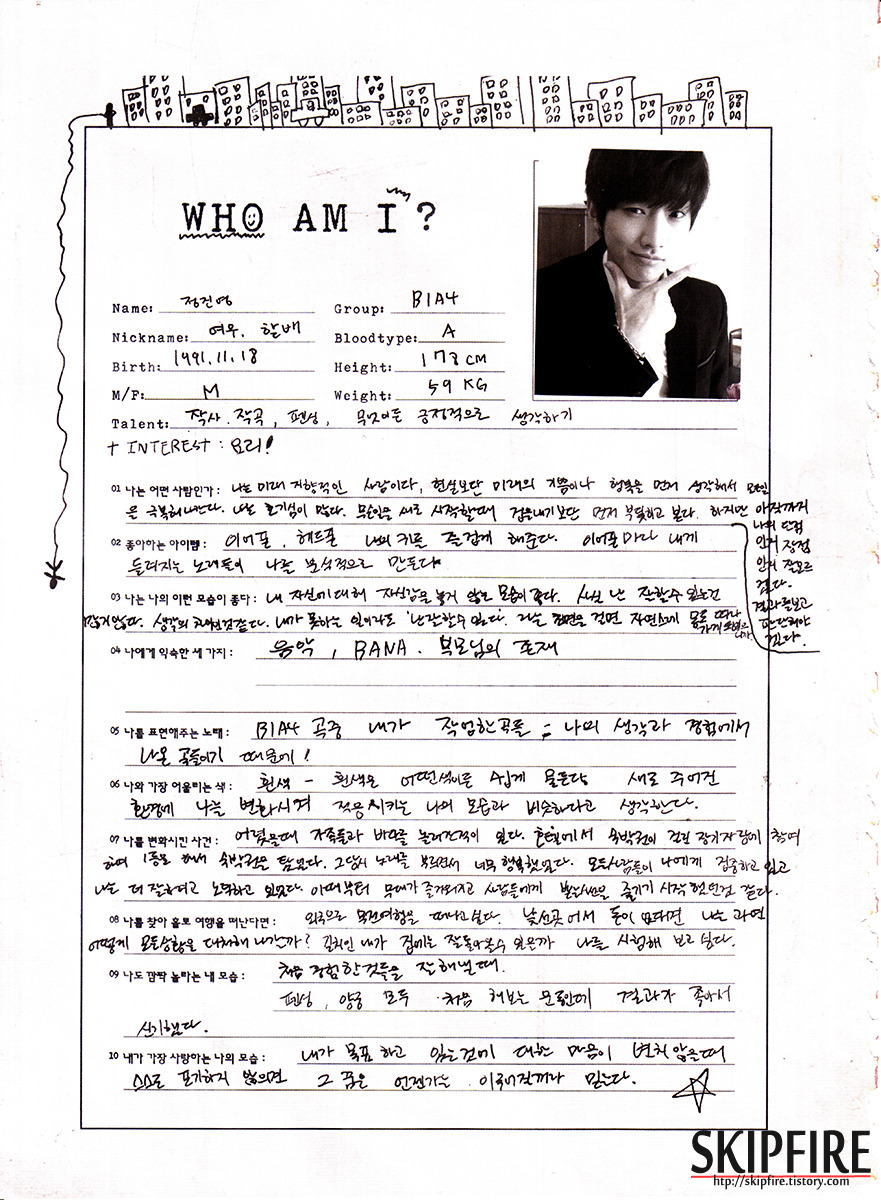 WHO AM I?
Name: 정진영
Group: B1A4
Nickname: 여우, 할배
Bloodtype: A
Birth: 1991.11.18
Height: 178 CM
M/F: M
Weight: 59 KG
Talent: 작사. 작곡, 펜싱, 무엇이든 긍정적으로 생각하기
+ INTEREST : 요리!
01 나는 어떤 사람인가 : 나는 미래 지향적인 사람이다, 현실보단 미래의 기쁨이나 행복을 먼저 생각해서 모든일
을 극복해나간다. 나는 호기심이 많다. 무슨일을 새로 시작할때 겁을내기보단 먼저 부딪히고 본다. 하지만 아직까지
나의 단점
인지 장점
인지 잘모르
겠다.
결과를보고
판단해야
겠다.
02 좋아하는 아이템 : 이어폰, 헤드폰 나의 귀를 즐겁게 해준다. 이어폰마다 내게
들려지는 노래들이 나를 분석적으로 만든다
03 나는 나의 이런 모습이 좋다 : 내 자신에 대해 자신감을 놓지 않는 모습이 좋다. 사실 난 잘할수 있는건
많지않다. 생각의 차이인것같다. 내가 못하는 일이라도 '난 잘할수 있다'. 라는 최면을 걸면 자연스레 몸도 따라
가게 되있으
니까
04 나에게 익숙한 세 가지 : 음악, BANA. 부모님의 존재
05 나를 표현해주는 노래 : B1A4 곡중 내가 작업한곡들 = 나의 생각과 경험에서
나온 곡들이기 때문에!
06 나와 가장 어울리는 색 : 흰색 - 흰색은 어떤색이든 쉽게 물든다 새로 주어진
환경에 나를 변화시켜 적응시키는 나의 모습과 비슷하다고 생각한다.
07 나를 변화시킨 사건 : 어렸을때 가족들과 바다를 놀러간적이 있다. 호텔에서 숙박권이 걸린 장기자랑에 참여
하여 1등을 해서 숙박권을 탔었다. 그당시 노래를 부르면서 너무 행복했었다. 모든사람들이 나에게 집중하고 있고
나는 더 잘하려고 노력하고 있었다. 이때부터 무대가 즐거워지고 사람들에게 받는시선을 즐기기 시작했던것 같다.
08 나를 찾아 홀로 여행을 떠난다면 : 외국으로 무전여행을 떠나고싶다. 낯선곳에서 돈이 없다면 나는 과연
어떻게 모든상황을 대처해 나갈까? 길치인 내가 집에는 잘돌아올수 있을까 나를 시험해 보고 싶다.
09 나도 깜짝 놀라는 내 모습 : 처음 경험한것들을 잘해낼때.
펜싱, 양궁 모두 처음 해보는 운동인데 결과가 좋아서
신기했다.
10 내가 가장 사랑하는 나의 모습 : 내가 목표하고 있는것에 대한 마음이 변치 않을때
스스로 포기하지 않으면 그 꿈은 언젠가는 이루어진꺼라 믿는다.
SKIPFIRE
http://skipfire.tistory.com